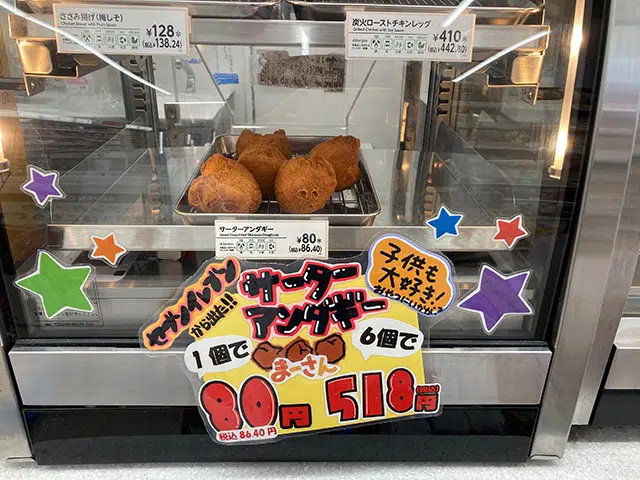 ささみ揚げ(梅しそ)
Chicken Breast with Plum Sauce
¥128※
(税込¥138.24)
炭火ローストチキンレッグ
Grilled Chicken with Soy Sauce
¥410※
(税込¥442.80)
サーターアンダギー
Sweet Deep-Fried Okinawan Doughnuts
¥80※
(税込¥86.40)
セブンイレブン
から出た!!
サーター
アンダギー
子供も
大好き!
おやつにいかが?
1個で
まーさん
6個で
80円
税込 86.40円
518円
(税込)